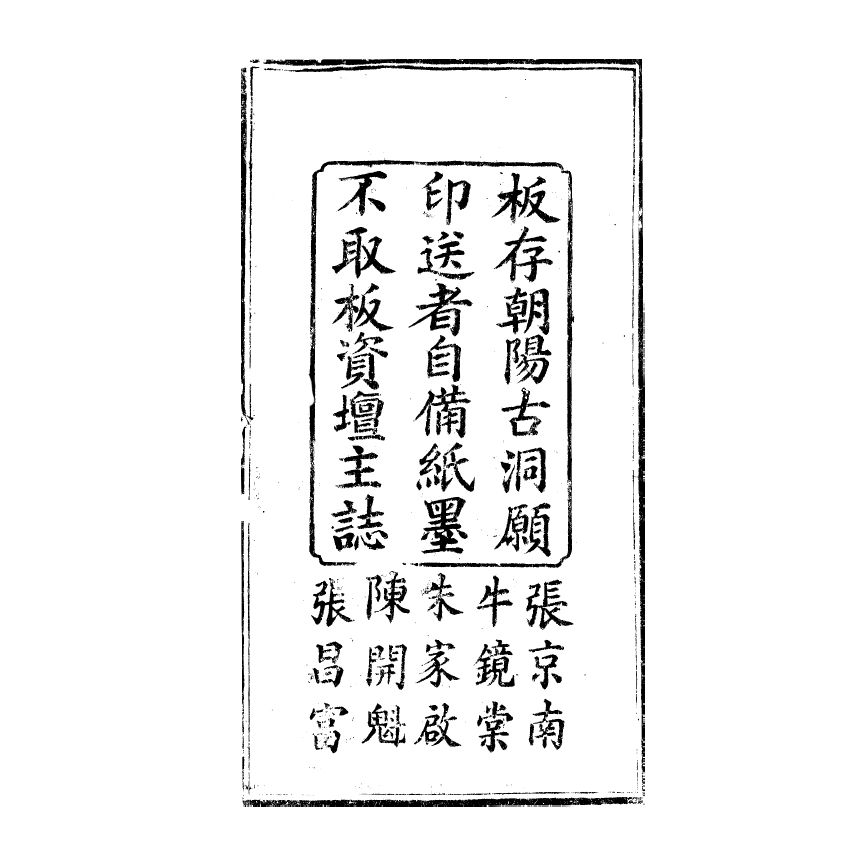 板存朝陽古洞願
印送者自備紙墨
不取板資壇主誌
張京南
牛鏡棠
朱家啟
陳開魁
張昌富